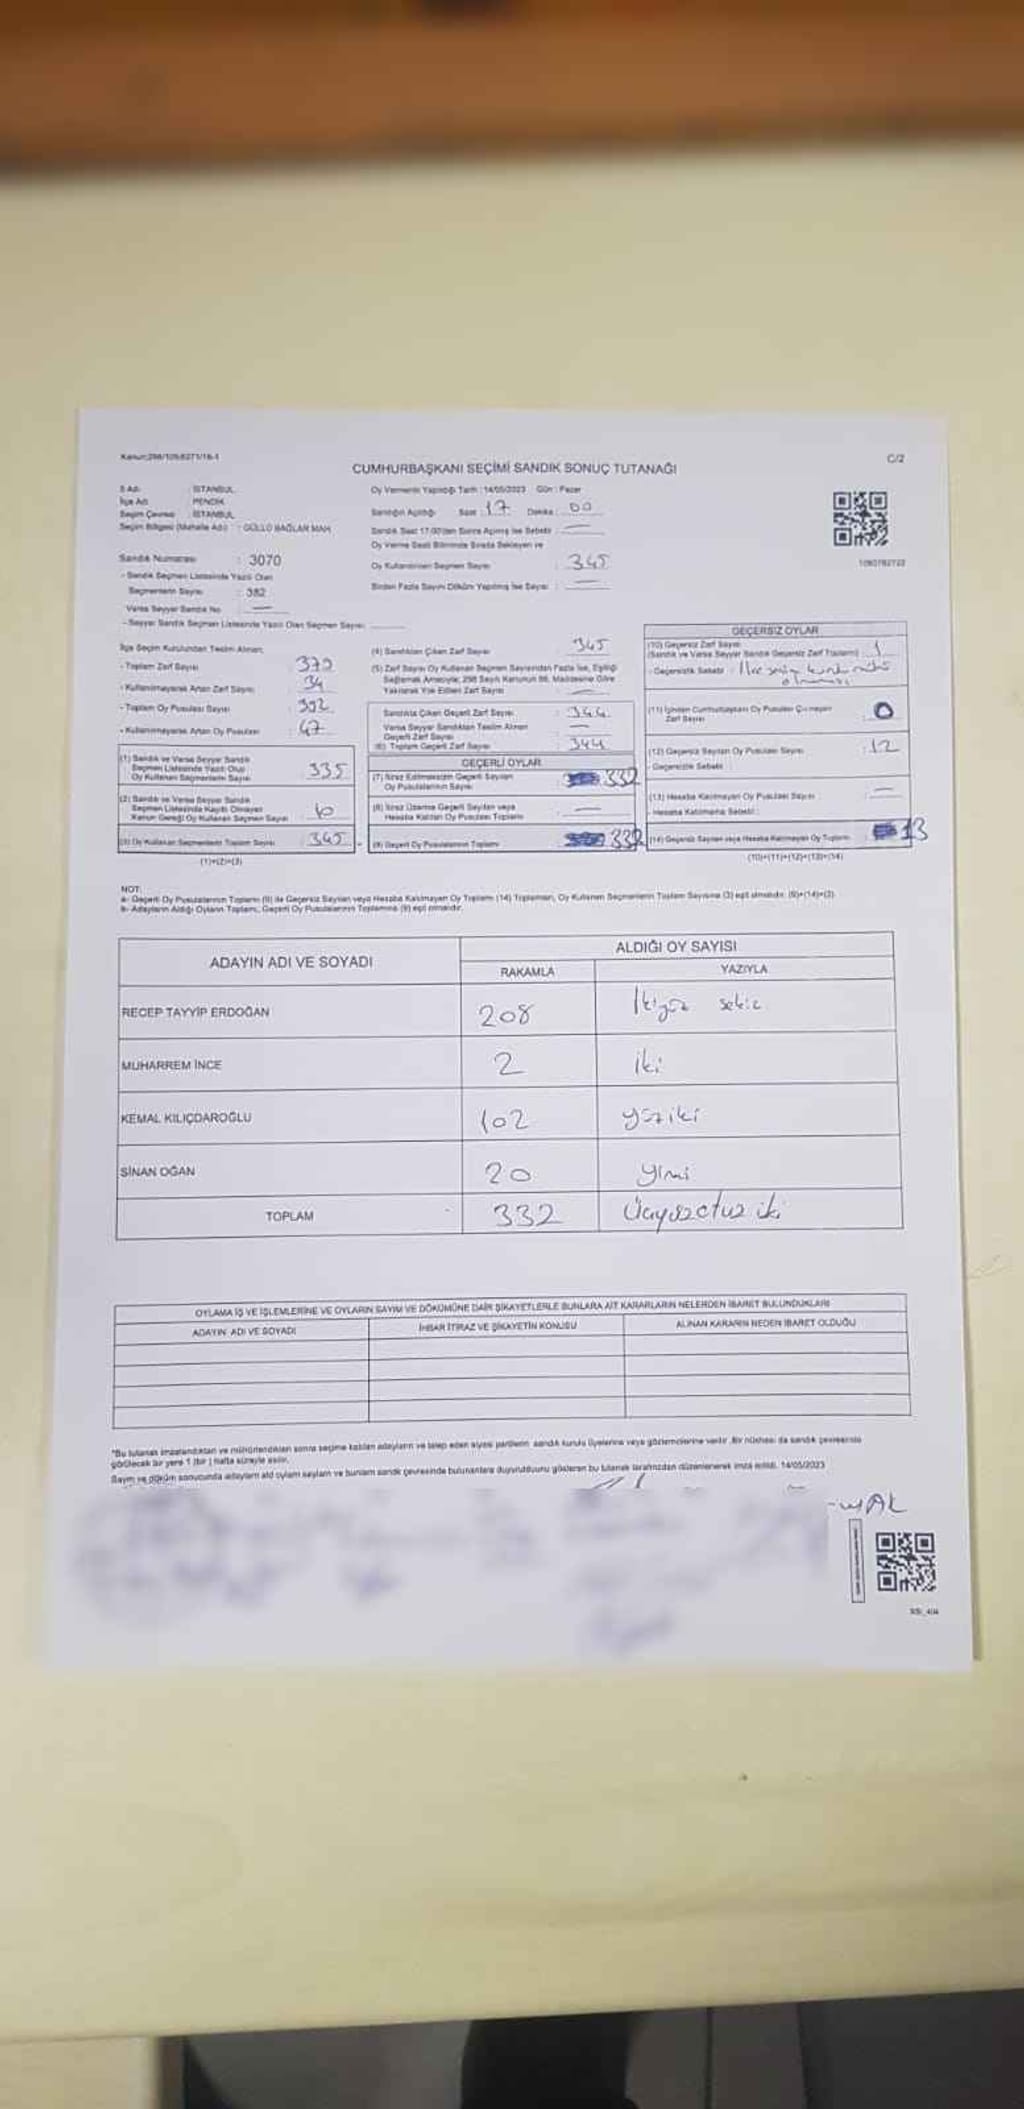 Kanun:298/105/6271/16-1
C/2
CUMHURBAŞKANI SEÇİMİ SANDIK SONUÇ TUTANAĞI
İl Adı : İSTANBUL
İlçe Adı : PENDİK
Seçim Çevresi : İSTANBUL
Seçim Bölgesi (Mahalle Adı) : GÜLLÜ BAĞLAR MAH.
Sandık Numarası : 3070
- Sandık Seçmen Listesinde Yazılı Olan
Seçmenlerin Sayısı : 382
Varsa Seyyar Sandık No —
- Seyyar Sandık Seçmen Listesinde Yazılı Olan Seçmen Sayısı
Oy Vermenin Yapıldığı Tarih : 14/05/2023 Gün : Pazar
Sandığın Açıldığı Saat : 17 Dakika : 00
Sandık Saat 17:00'den Sonra Açılmış İse Sebebi : —
Oy Verme Saati Bitiminde Sırada Bekleyen ve
Oy Kullandırılan Seçmen Sayısı : 345
Birden Fazla Sayım Döküm Yapılmış İse Sayısı : —
1080782722
İlçe Seçim Kurulundan Teslim Alınan;
- Toplam Zarf Sayısı
- Kullanılmayarak Artan Zarf Sayısı : 34
- Toplam Oy Pusulası Sayısı : 392
- Kullanılmayarak Artan Oy Pusulası : 47
(1) Sandık ve Varsa Seyyar Sandık
Seçmen Listesinde Yazılı Olup
Oy Kullanan Seçmenlerin Sayısı : 335
(2) Sandık ve Varsa Seyyar Sandık
Seçmen Listesinde Kayıtlı Olmayan
Kanun Gereği Oy Kullanan Seçmen Sayısı
(3) Oy Kullanan Seçmenlerin Toplam Sayısı : 345
(1)+(2)=(3)
(4) Sandıktan Çıkan Zarf Sayısı : 345
(5) Zarf Sayısı Oy Kullanan Seçmen Sayısından Fazla İse, Eşitliği
Sağlamak Amacıyla; 298 Sayılı Kanunun 98. Maddesine Göre
Yakılarak Yok Edilen Zarf Sayısı : —
Sandıkta Çıkan Geçerli Zarf Sayısı : 344
Varsa Seyyar Sandıktan Teslim Alınan
Geçerli Zarf Sayısı : —
(6) Toplam Geçerli Zarf Sayısı : 344
GEÇERLİ OYLAR
(7) İtiraz Edilmeksizin Geçerli Sayılan
Oy Pusulalarının Sayısı : 332
(8) İtiraz Üzerine Geçerli Sayılan veya
Hesaba Katılan Oy Pusulası Toplamı : —
(9) Geçerli Oy Pusulalarının Toplamı : 332
GEÇERSİZ OYLAR
(10) Geçersiz Zarf Sayısı
(Sandık ve Varsa Seyyar Sandık Geçersiz Zarf Toplamı) : 1
- Geçersizlik Sebebi : İlçe seçim kurulu mührü
olmaması
(11) İçinden Cumhurbaşkanı Oy Pusulası Çıkmayan
Zarf Sayısı : 0
(12) Geçersiz Sayılan Oy Pusulası Sayısı : 12
- Geçersizlik Sebebi :
(13) Hesaba Katılmayan Oy Pusulası Sayısı : —
- Hesaba Katılmama Sebebi :
(14) Geçersiz Sayılan veya Hesaba Katılmayan Oy Toplamı : 13
(10)+(11)+(12)+(13)=(14)
NOT:
a- Geçerli Oy Pusulalarının Toplamı (9) ile Geçersiz Sayılan veya Hesaba Katılmayan Oy Toplamı (14) Toplamları, Oy Kullanan Seçmenlerin Toplam Sayısına (3) eşit olmalıdır. (9)+(14)=(3)
b- Adayların Aldığı Oyların Toplamı, Geçerli Oy Pusulalarının Toplamına (9) eşit olmalıdır.
ADAYIN ADI VE SOYADI
ALDIĞI OY SAYISI
RAKAMLA YAZIYLA
RECEP TAYYİP ERDOĞAN 208 İkiyüz sekiz
MUHARREM İNCE 2 iki
KEMAL KILIÇDAROĞLU 102 yüziki
SİNAN OĞAN 20 yirmi
TOPLAM 332 Üçyüzotuz iki
OYLAMA İŞ VE İŞLEMLERİNE VE OYLARIN SAYIM VE DÖKÜMÜNE DAİR ŞİKAYETLERLE BUNLARA AİT KARARLARIN NELERDEN İBARET BULUNDUKLARI
ADAYIN ADI VE SOYADI İHBAR İTİRAZ VE ŞİKAYETİN KONUSU ALINAN KARARIN NEDEN İBARET OLDUĞU
*Bu tutanak imzalandıktan ve mühürlendikten sonra seçime katılan adayların ve talep eden siyasi partilerin sandık kurulu üyelerine veya gözlemcilerine verilir. Bir nüshası da sandık çevresinde
görülecek bir yere 1 (bir) hafta süreyle asılır.
Sayım ve döküm sonucunda adayların aldığı oyların sayıları ve bunların sandık çevresinde bulunanlara duyurulduğunu gösteren bu tutanak tarafımızdan düzenlenerek imza edildi. 14/05/2023